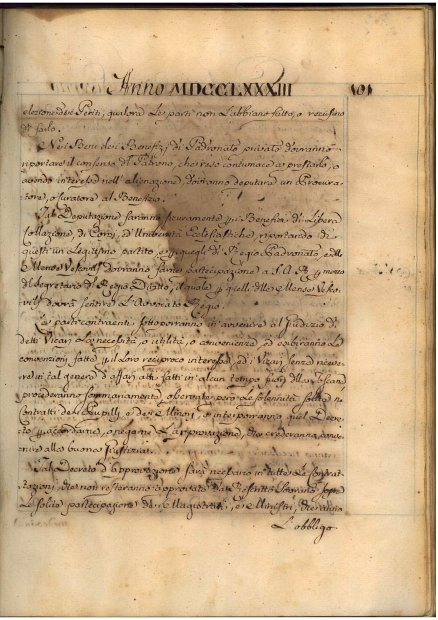 Anno MDCCLXXXIII 101
elezione dei Periti, qualora le parti non l'abbiano fatto, o recusino
di farlo.
Nei Beni dei Benefizj di Padronato privato dovranno
riportare il consenso del Padrono, che reso contumace a prestarlo, o
avendo interesse nell'alienazione, dovranno deputare un Procura-
tore, o Curatore al Benefizio.
Tal Deputazione faranno sicuramente per i Benefizj di Libera
Collazione, di Corpi, ed Università Ecclesiastiche riportando di
questi un Legittimo partito, e per quegli di Regio Padronato, e delle
Mense Vescovili dovranno farne partecipazione a S. A. R. per mezzo
di Segretario di Regio Diritto, il quale per quelli delle Mense Vesco-
vili dovrà sentire l'Avvocato Regio.
Le parti contraenti sottoporranno in avvenire al giudizio di
detti Vicarj la necessità, o utilità, o convenienza, ed esibiranno le
convenzioni fatte per il loro reciproco interesse, ed i Vicarj senza
in tal genere d'affari atti fatti in alcun tempo fuori della Toscana
procederanno sommariamente, osservate però le solennità solite nei
Contratti dei Pupilli, o dei Minori, e interporranno quel Decre-
to per accordarne, o negarne l'approvazione, che crederanno conve-
niente alla buona giustizia.
Tal Decreto d'approvazione sarà necessario in tutte le Contrat-
tazioni, che non resteranno approvate da Rescritto Sovrano sopra
le solite partecipazioni dei Magistrati, e Ministri, che hanno
L'obbligo